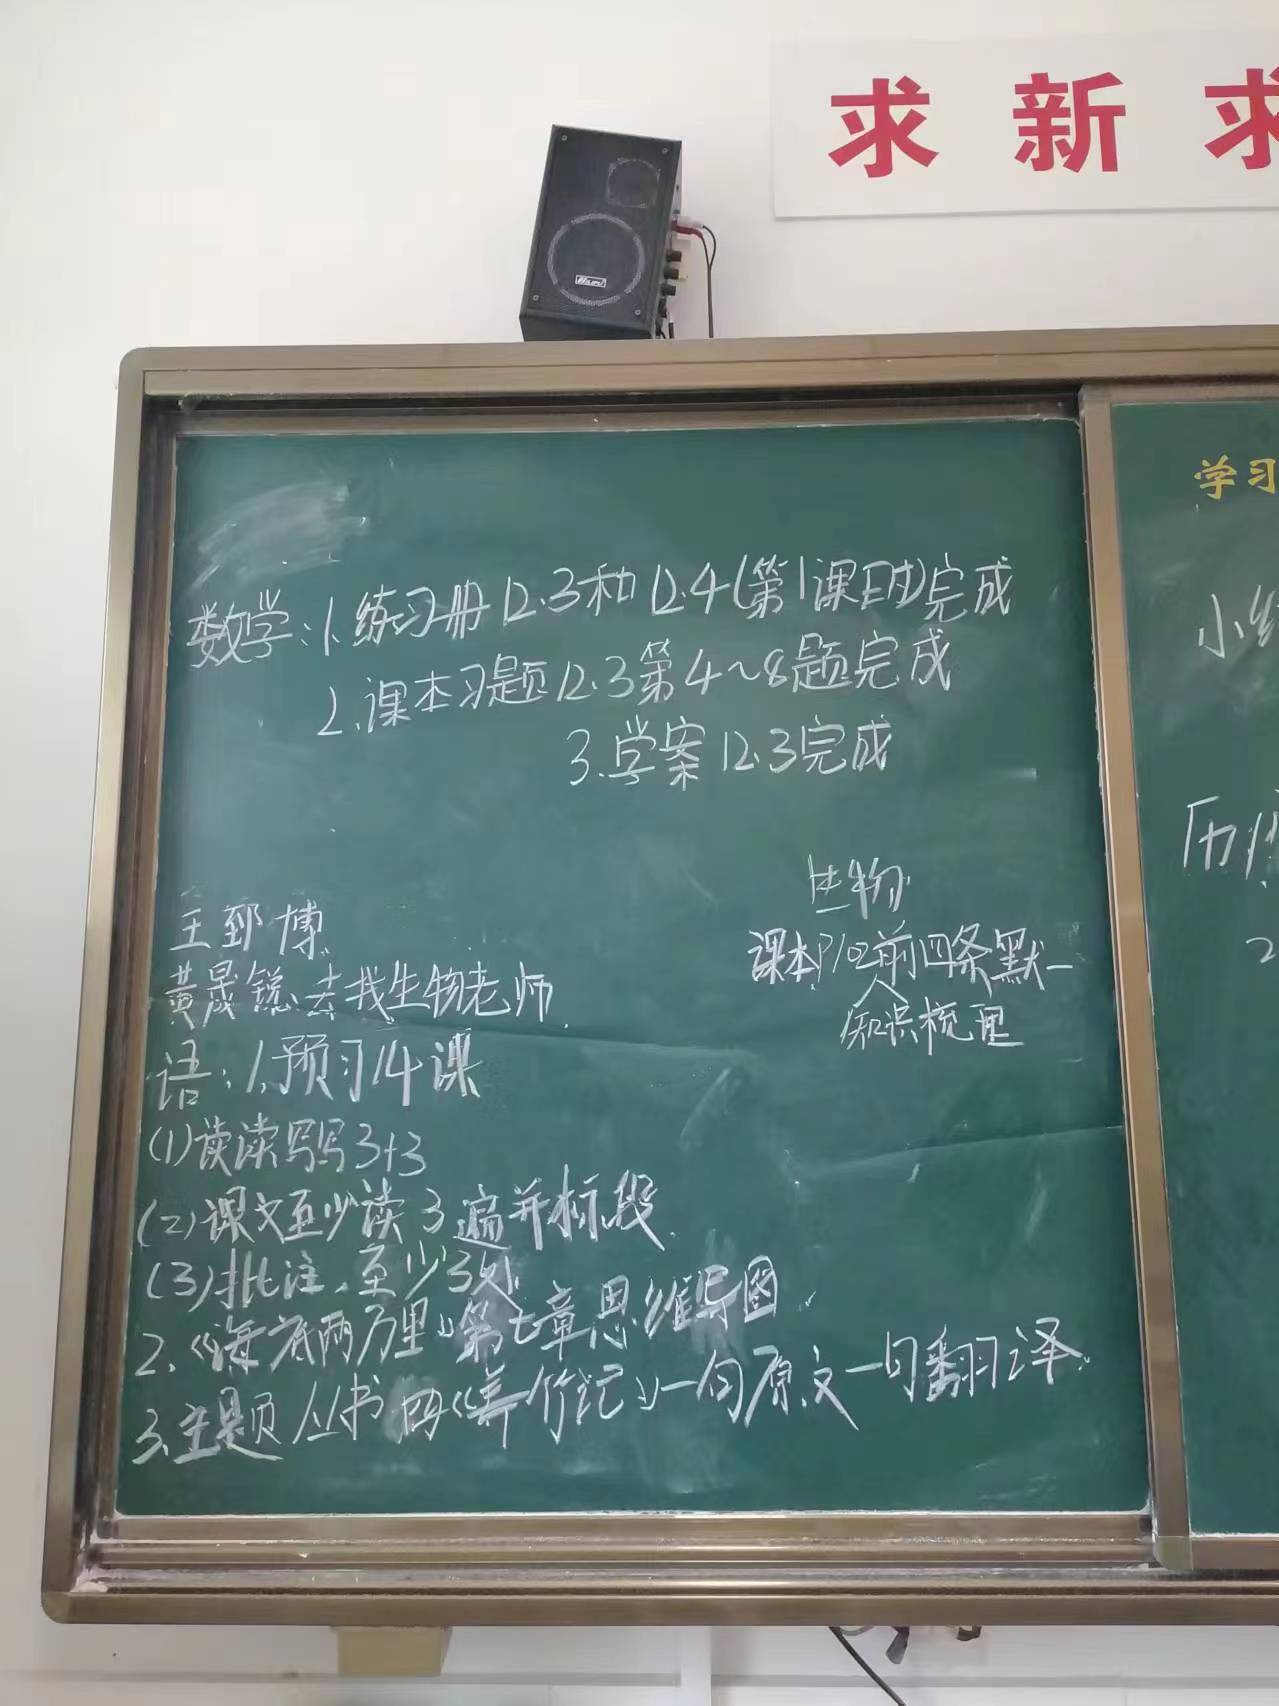 求新求
学习
数学:1.练习册12.3和12.4(第1课时)完成
2.课本习题12.3第4~8题完成
3.学案12.3完成
小
生物
课本P102前四条默一
知识梳理
历
2
王郅博
黄晟锐、去找生物老师.
语:1.预习14课
(1)读读写写3+3
(2)课文至少读3遍并标段.
(3)批注、至少3处
2.《海底两万里》第七章思维导图
3.主题丛书《养竹记》一句原文一句翻译.